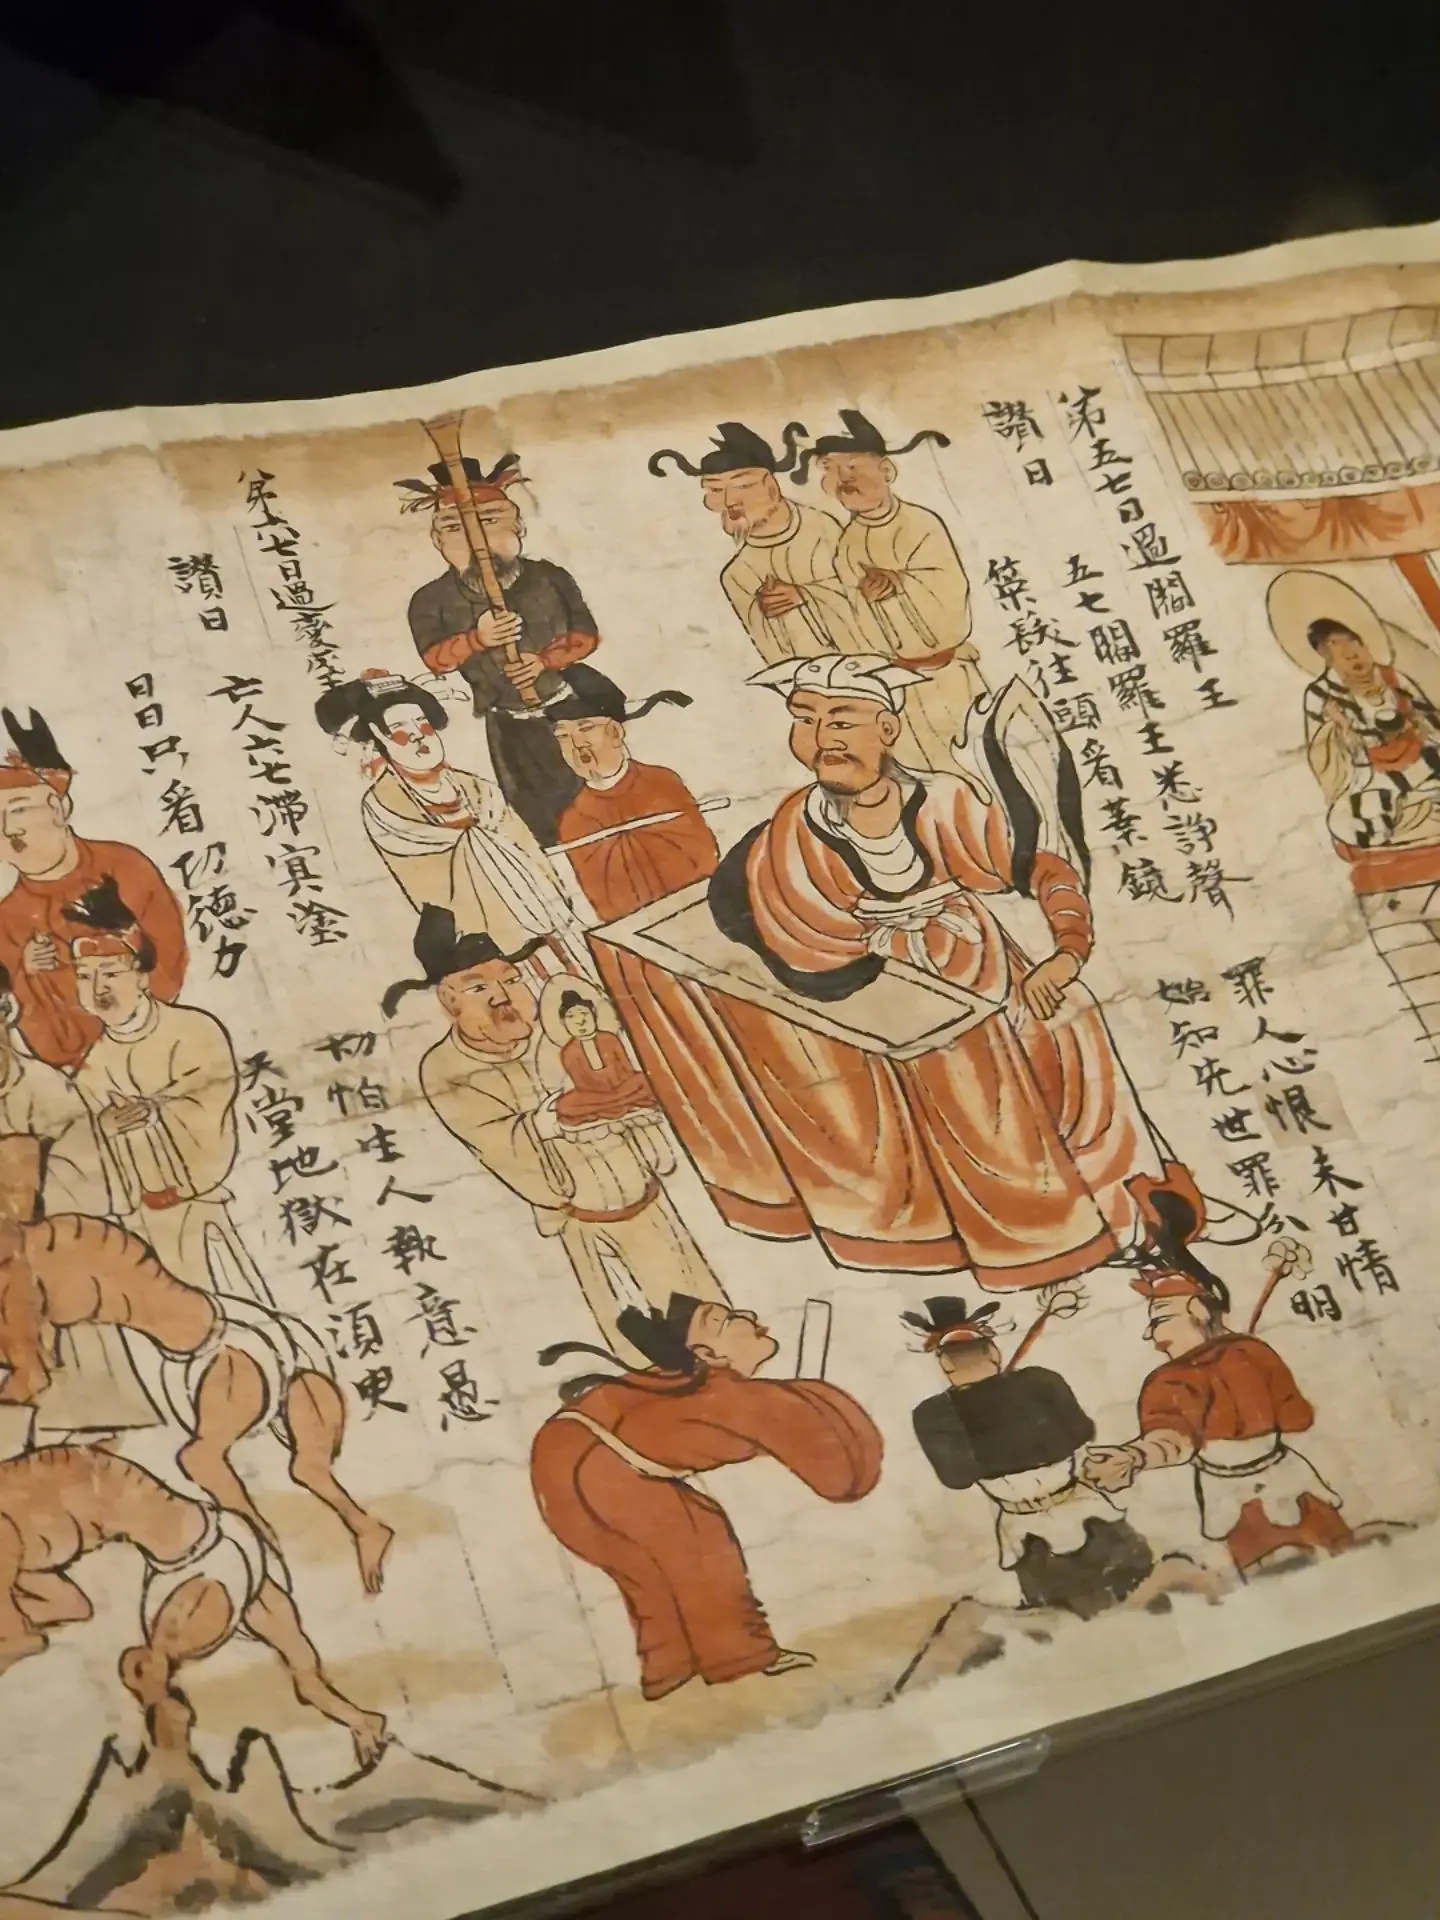 第五七日過閻羅王
讚曰
五七閻羅王悉諍聲
罪人心恨未甘情
策髮往頭看業鏡
始知先世罪分明
第六七日過變成王
讚曰
亡人六七滯冥塗
切怕生人執意愚
日日只看功德力
天堂地獄在須臾